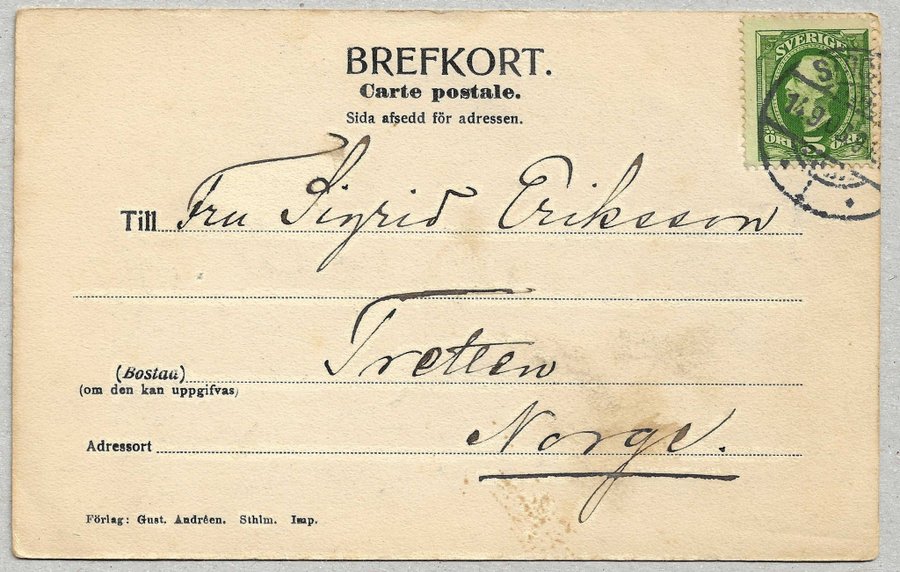 BREFKORT.
Carte postale.
Sida afsedd för adressen.
SVERIGE
ÖRE 5 ÖRE
Till Fru Sigrid Eriksson
Tretten
(Bostad)
(om den kan uppgifvas)
Norge.
Adressort
Förlag: Gust. Andréen. Sthlm. Imp.